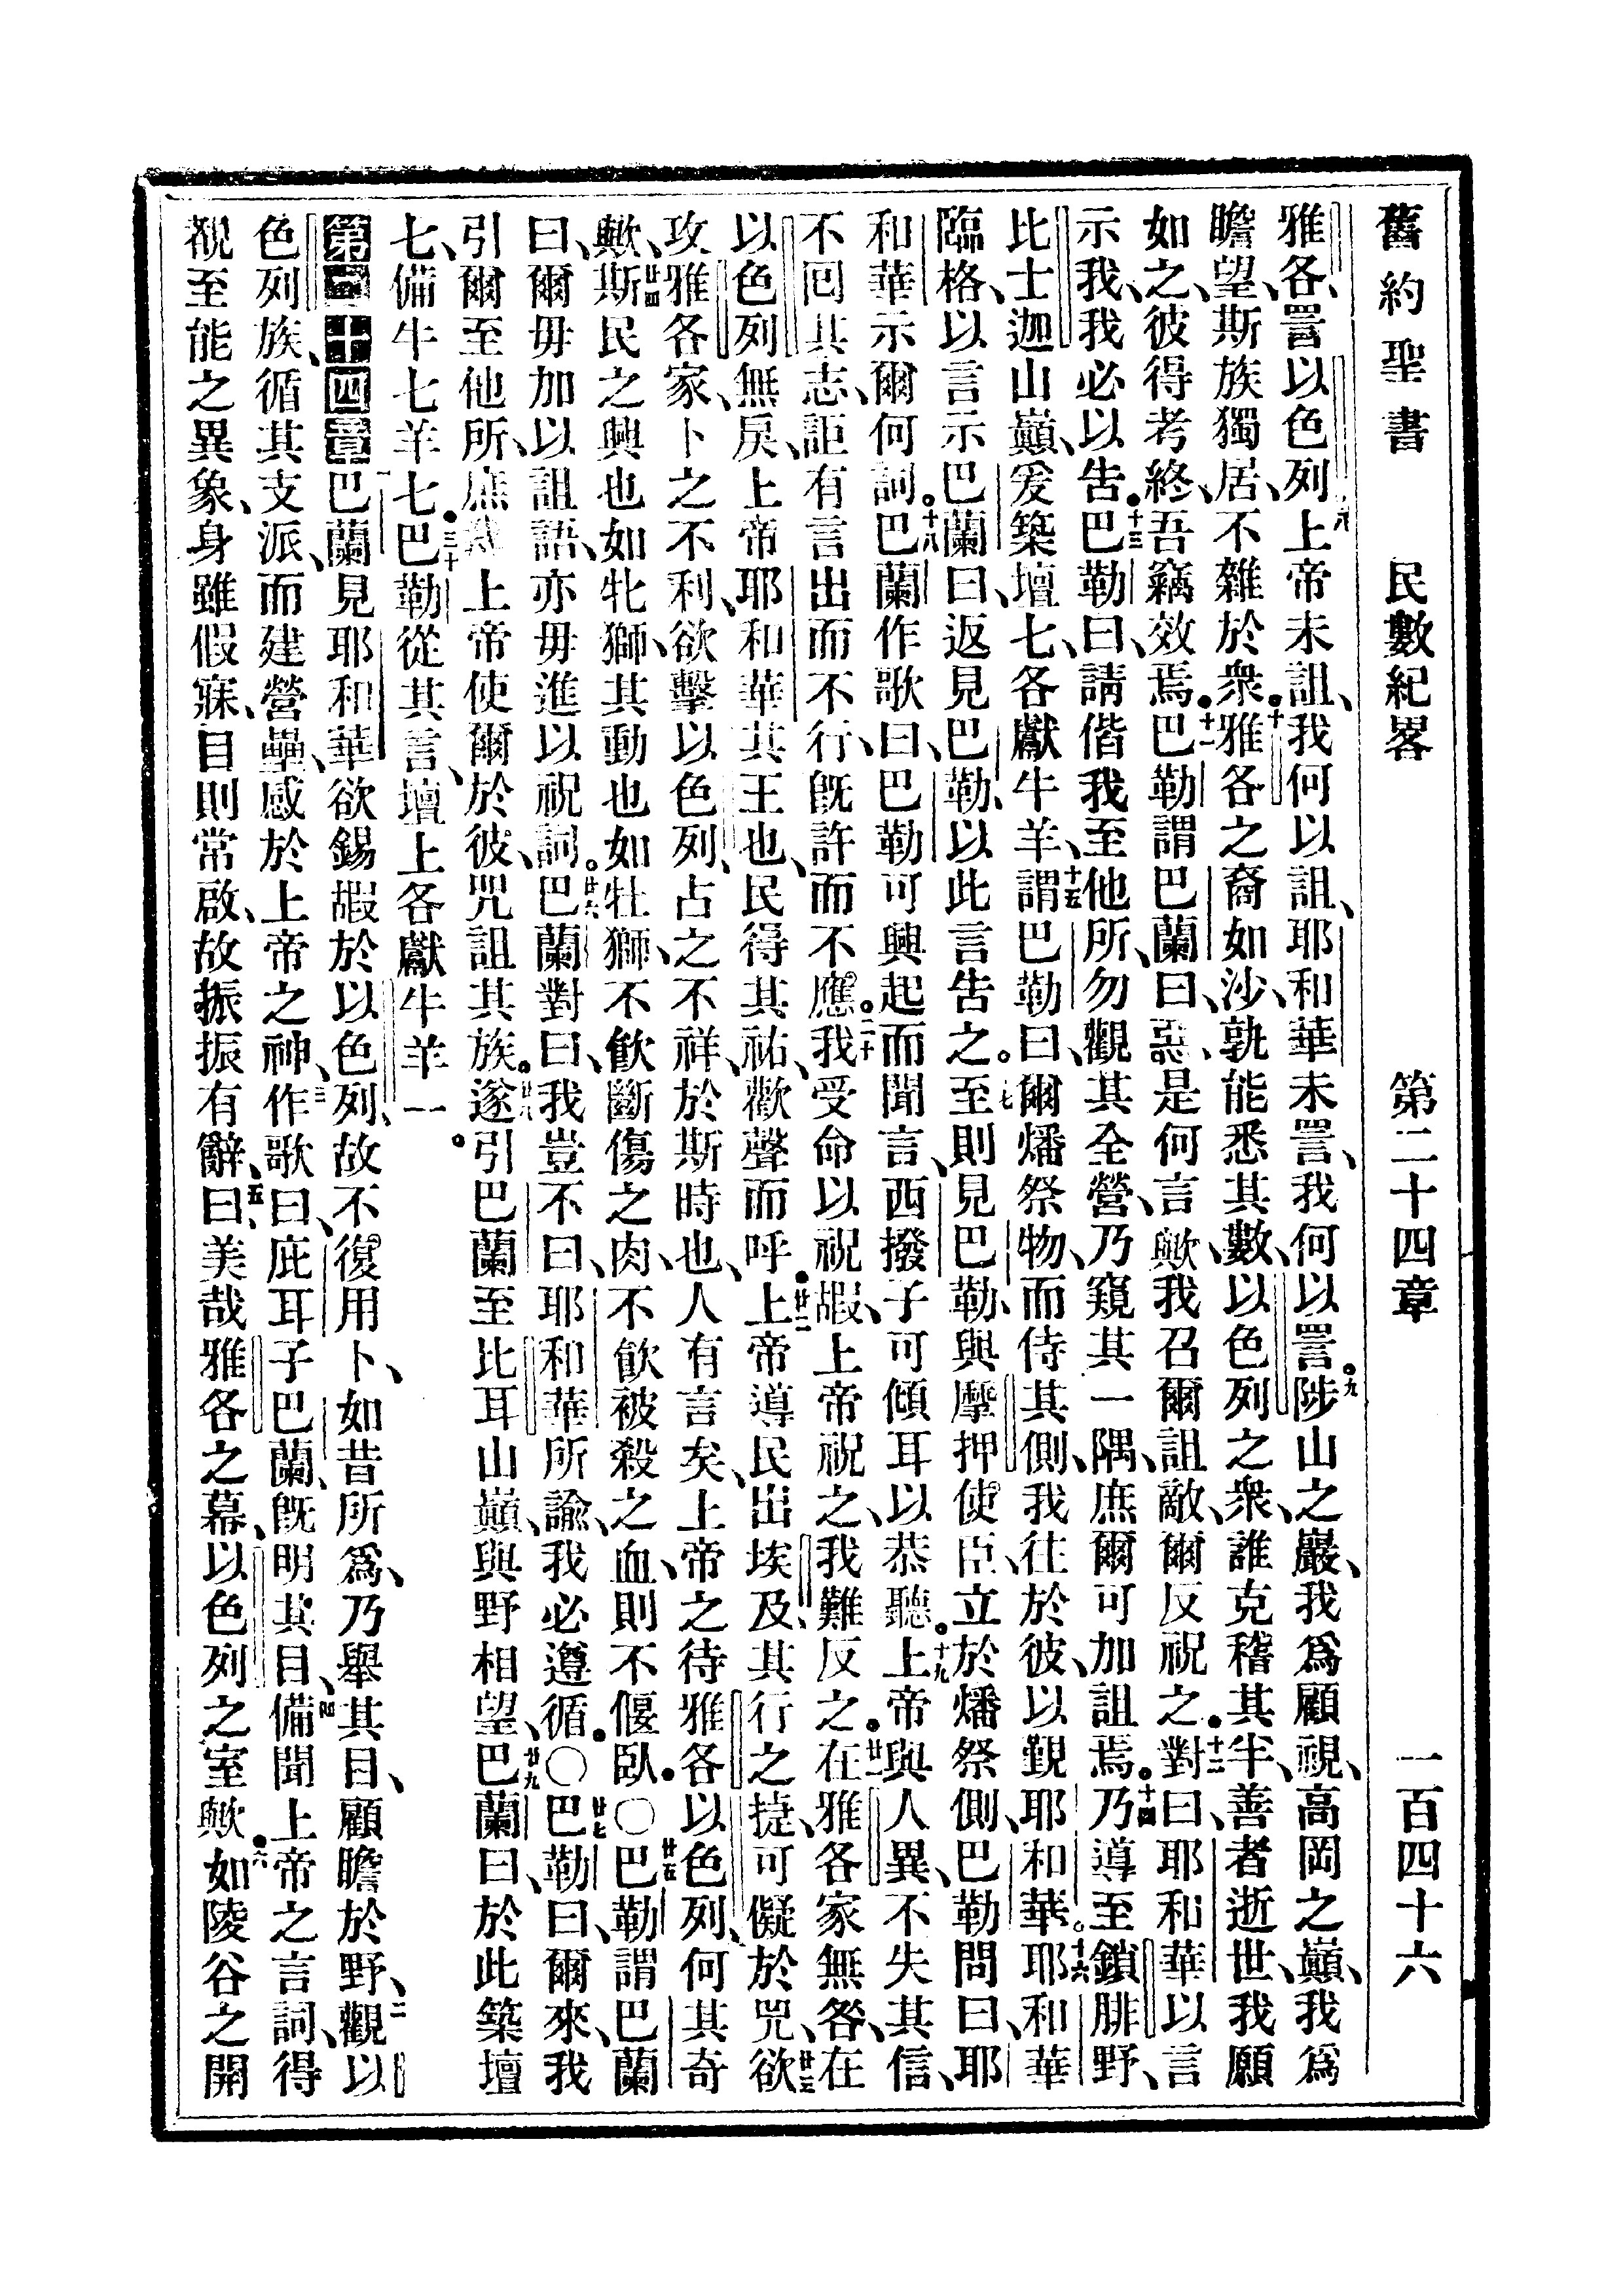 舊約聖書 民數紀畧 第二十四章 一百四十六
雅各、詈以色列、八上帝未詛、我何以詛、耶和華未詈、我何以詈。九陟山之巖、我爲顧視、高岡之巔、我爲
瞻望、斯族獨居、不雜於衆。十雅各之裔如沙、孰能悉其數、以色列之衆、誰克稽其半、善者逝世、我願
如之、彼得考終、吾竊效焉。十一巴勒謂巴蘭曰、惡、是何言歟、我召爾詛敵、爾反祝之。十二對曰、耶和華以言
示我、我必以告。十三巴勒曰、請偕我至他所、勿觀其全營、乃窺其一隅、庶爾可加詛焉。十四乃導至鎖腓野、
比士迦山巔、爰築壇七、各獻牛羊、十五謂巴勒曰、爾燔祭物、而侍其側、我往於彼、以覲耶和華。十六耶和華
臨格、以言示巴蘭曰、返見巴勒、以此言告之。十七至則見巴勒、與摩押使臣、立於燔祭側、巴勒問曰、耶
和華示爾何詞。十八巴蘭作歌曰、巴勒可興起而聞言、西撥子可傾耳以恭聽。十九上帝與人異、不失其信、
不回其志、詎有言出而不行、旣許而不應。二十我受命以祝嘏、上帝祝之、我難反之。廿一在雅各家無咎、在
以色列無戾、上帝耶和華其王也、民得其祐、歡聲而呼。廿二上帝導民出埃及、其行之捷、可儗於兕、廿三欲
攻雅各家、卜之不利、欲擊以色列、占之不祥、於斯時也、人有言矣、上帝之待雅各以色列、何其奇
歟、廿四斯民之興也如牝獅、其動也如牡獅、不飮斷傷之肉、不飮被殺之血、則不偃臥。〇廿五巴勒謂巴蘭
曰、爾毋加以詛語、亦毋進以祝詞。廿六巴蘭對曰、我豈不曰、耶和華所諭、我必遵循。〇廿七巴勒曰、爾來、我
引爾至他所、庶幾上帝使爾於彼、咒詛其族。廿八遂引巴蘭至比耳山巔、與野相望、廿九巴蘭曰、於此築壇
七、備牛七羊七。三十巴勒從其言、壇上各獻牛羊一。
第二十四章 巴蘭見耶和華欲錫嘏於以色列、故不復用卜、如昔所爲、乃舉其目、顧瞻於野、二觀以
色列族、循其支派、而建營壘、感於上帝之神、三作歌曰、庇耳子巴蘭、旣明其目、四備聞上帝之言詞、得
覩至能之異象、身雖假寐、目則常啟、故振振有辭、五曰、美哉雅各之幕、以色列之室歟。六如陵谷之開